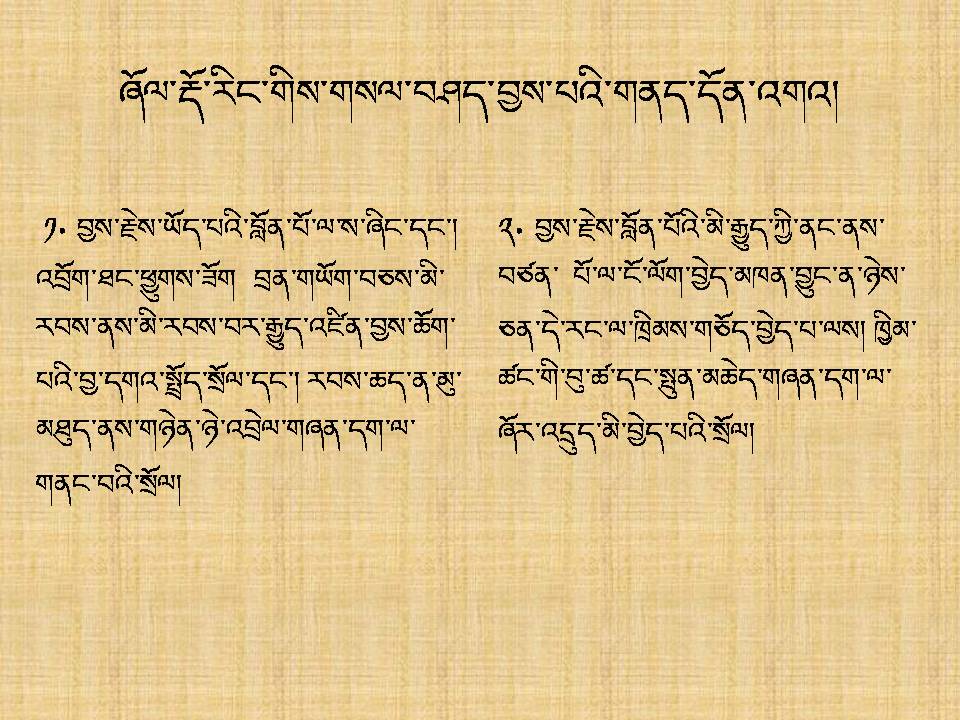 ཞོལ་རྡོ་རིང་གིས་གསལ་བཤད་བྱས་པའི་གནད་དོན་འགའ།
༡. བྱས་རྗེས་ཡོད་པའི་བློན་པོ་ལ་ས་ཞིང་དང་།
འབྲོག་ཐང་ཕྱུགས་ཟོག བྲན་གཡོག་བཅས་མི་
རབས་ནས་མི་རབས་བར་རྒྱུད་འཛིན་བྱས་ཆོག་
པའི་བྱ་དགའ་སྤྲོད་སྲོལ་དང་། རབས་ཆད་ན་མུ་
མཐུད་ནས་གཉེན་ཉེ་འབྲེལ་གཞན་དག་ལ་
གནང་བའི་སྲོལ།
༢. བྱས་རྗེས་བློན་པོའི་མི་རྒྱུད་ཀྱི་ནང་ནས་
བཙན་ པོ་ལ་ངོ་ལོག་བྱེད་མཁན་བྱུང་ན་ཉེས་
ཅན་དེ་རང་ལ་ཁྲིམས་གཅོད་བྱེད་པ་ལས། ཁྱིམ་
ཚང་གི་བུ་ཚ་དང་སྤུན་མཆེད་གཞན་དག་ལ་
ཞོར་འདྲུད་མི་བྱེད་པའི་སྲོལ།